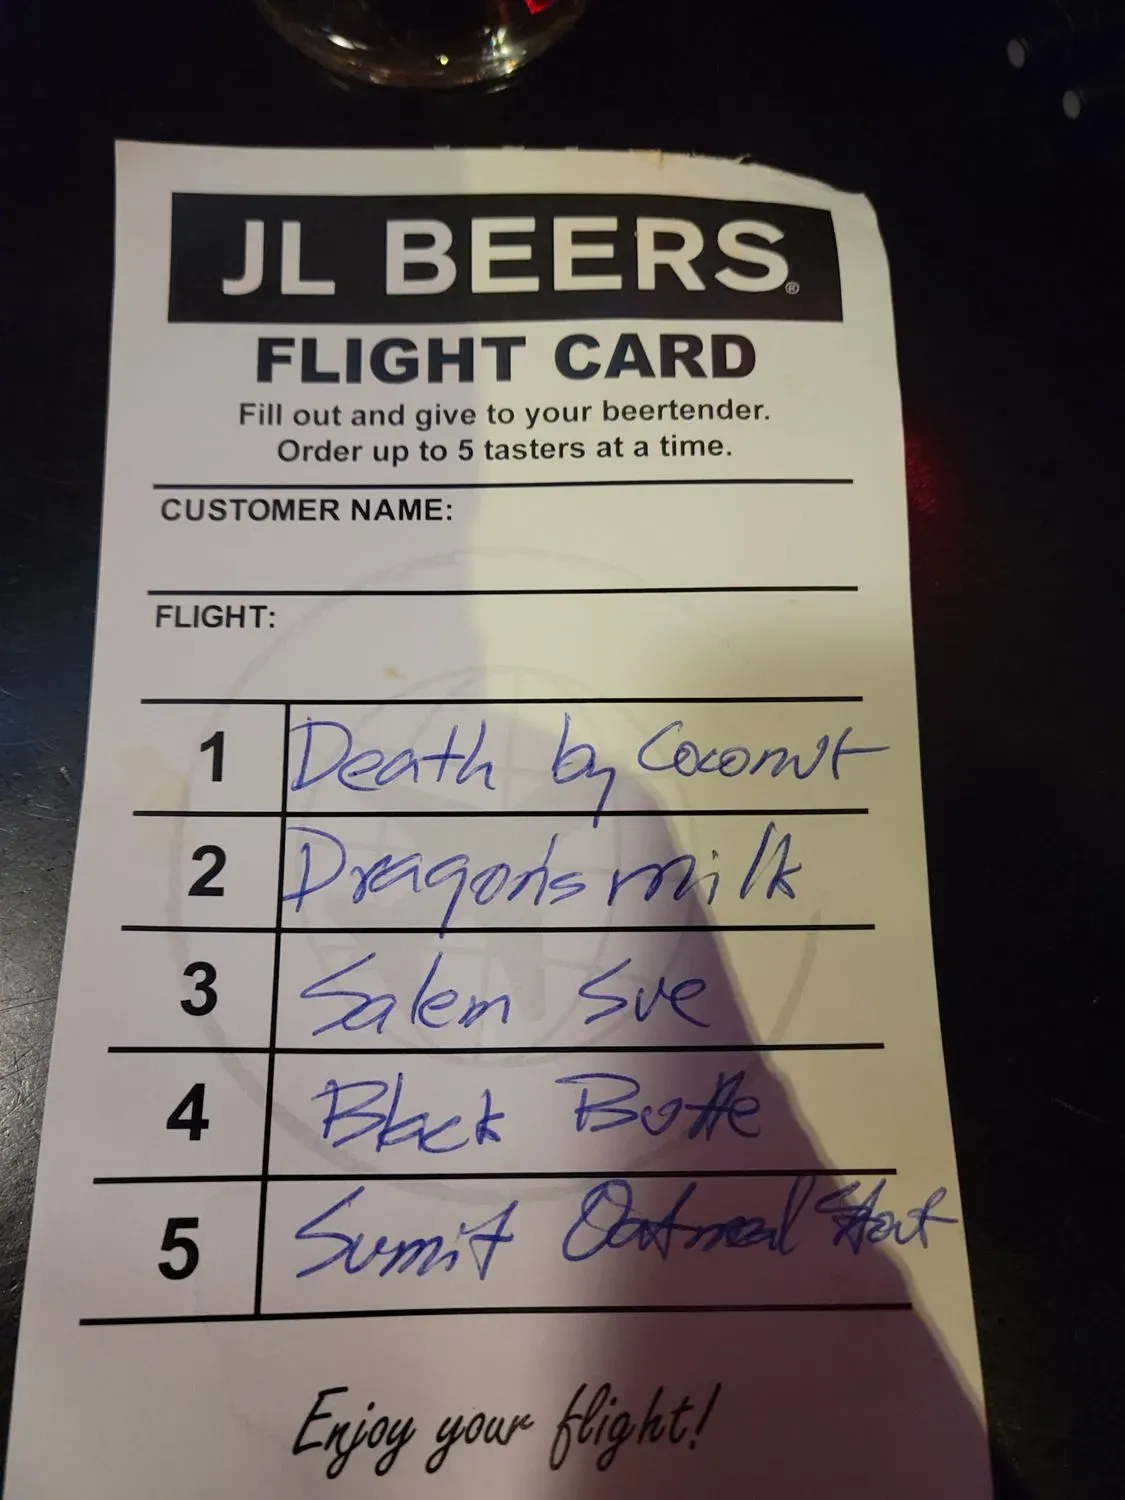 JL BEERS®
FLIGHT CARD
Fill out and give to your beertender.
Order up to 5 tasters at a time.
CUSTOMER NAME:
FLIGHT:
1 Death by Coconut
2 Dragon's milk
3 Salem Sue
4 Black Butte
5 Sumit Oatmeal Stout
Enjoy your flight!